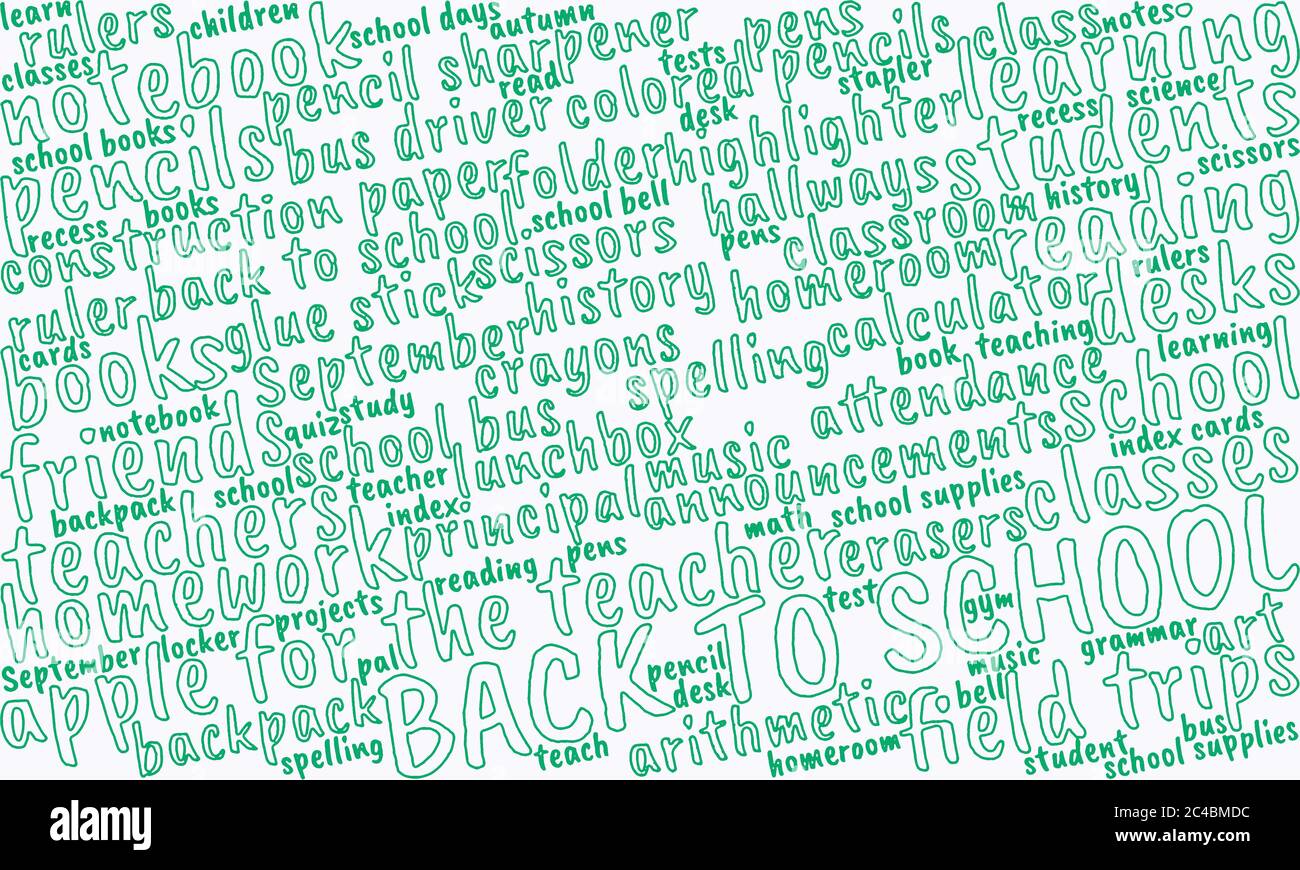 learn
rulers
children
school days
autumn
pens
class
notes
classes
notebook
pencil sharpener
read
tests
colored pencils
stapler
learning
school books
pencils
bus driver
desk
highlighter
recess
science
students
scissors
recess
books
construction paper
folder
school bell
hallways
history
reading
back to school
scissors
pens
classroom
rulers
ruler
glue stick
history
homeroom
desks
cards
books
september
crayons
spelling
calculator
book
teaching
learning
notebook
quiz
study
bus
attendance
school
friends
school
lunchbox
music
index cards
backpack
school
teacher
index
principal
announcements
school supplies
classes
teachers
homework
reading
pens
math
erasers
September
locker
projects
apple for the teacher
test
gym
BACK TO SCHOOL
grammar
art
pal
pencil
desk
music
bell
backpack
spelling
teach
arithmetic
homeroom
field trips
student
bus
school supplies
alamy
Image ID: 2C4BMDC
www.alamy.com
alamy stock photo